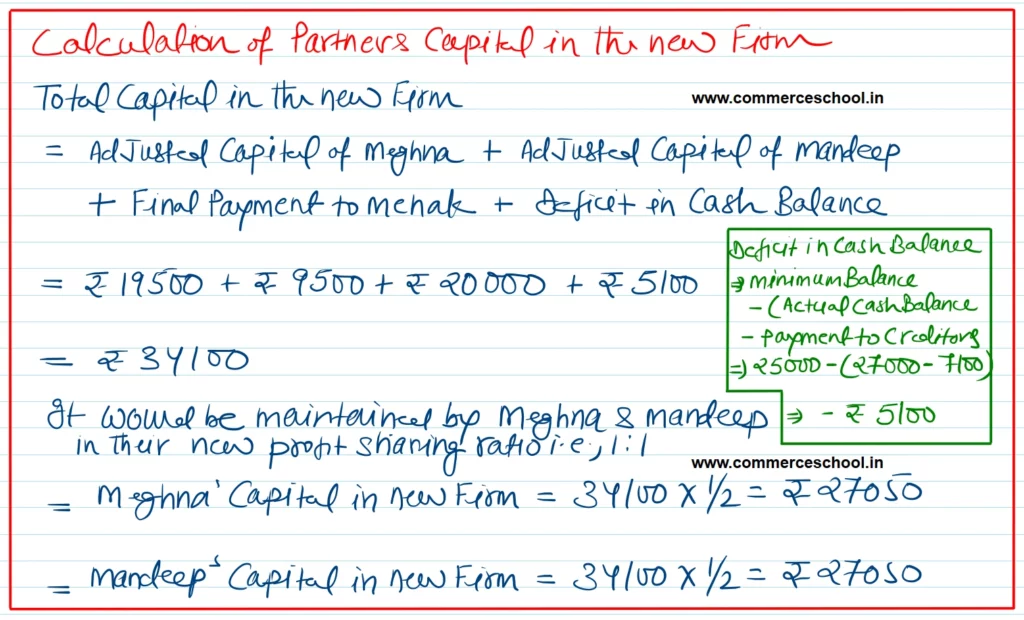 Calculation of Partners Capital in the new Firm
Total Capital in the new Firm
www.commerceschool.in
= AdJusted Capital of Meghna + AdJusted Capital of mandeep
+ Final Payment to Mehak + Deficit in Cash Balance
= ₹ 19500 + ₹ 9500 + ₹ 20000 + ₹ 5100
= ₹ 34100
Deficit in Cash Balance
⇒ minimum Balance
- (Actual Cash Balance
- payment to Creditors
=) 25000 - (27000 - 7100)
⇒ - ₹ 5100
It would be maintained by Meghna & mandeep
in their new profit sharing ratio i.e., 1:1
www.commerceschool.in
= Meghna' Capital in new Firm = 34100 X 1/2 = ₹ 27050
= Mandeep's Capital in new Firm = 34100 X 1/2 = ₹ 27050